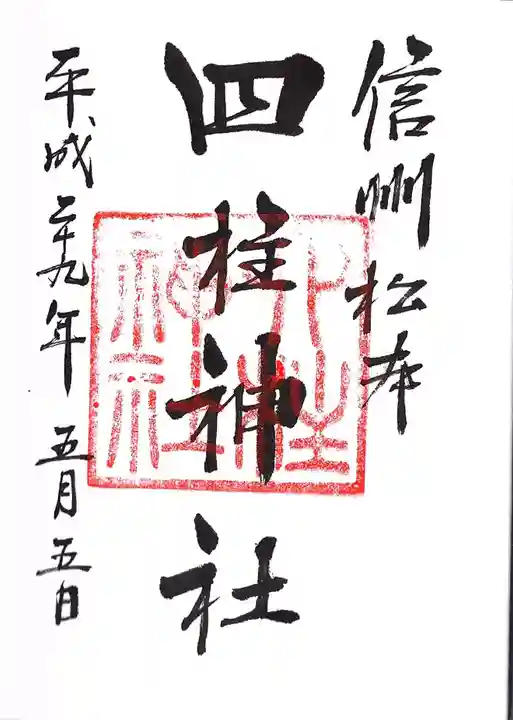 信州松本
四柱神社
平成二十九年 五月五日
四柱神社